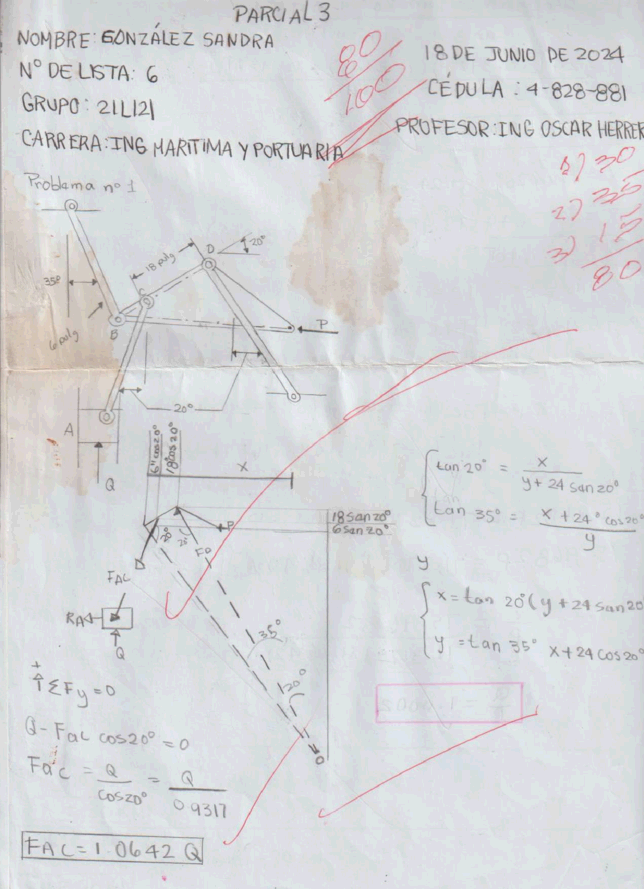 PARCIAL 3
NOMBRE: GONZÁLEZ SANDRA
N° DE LISTA: 6
GRUPO: 21L121
CARRERA: ING MARITIMA Y PORTUARIA
80
100
18 DE JUNIO DE 2024
CÉDULA: 4-828-881
PROFESOR: ING OSCAR HERRER
1) 30
2) 35
3) 15
80
Problema n° 1
35°
18 pulg
D
20°
C
B
6 pulg
P
20°
A
Q
6"cos20°
18"cos20°
X
18 san 20°
6 san 20°
20°
FD
FAL
RA
Q
35°
20°
tan 20° = x / y + 24 san 20°
tan 35° = x + 24" cos20° / y
y
x = tan 20° (y + 24 san 20
y = tan 35° x + 24 cos 20°
+↑ ΣFy = 0
Q - Fac cos20° = 0
Fac = Q / cos20° = Q / 0.9317
FAC = 1.0642 Q